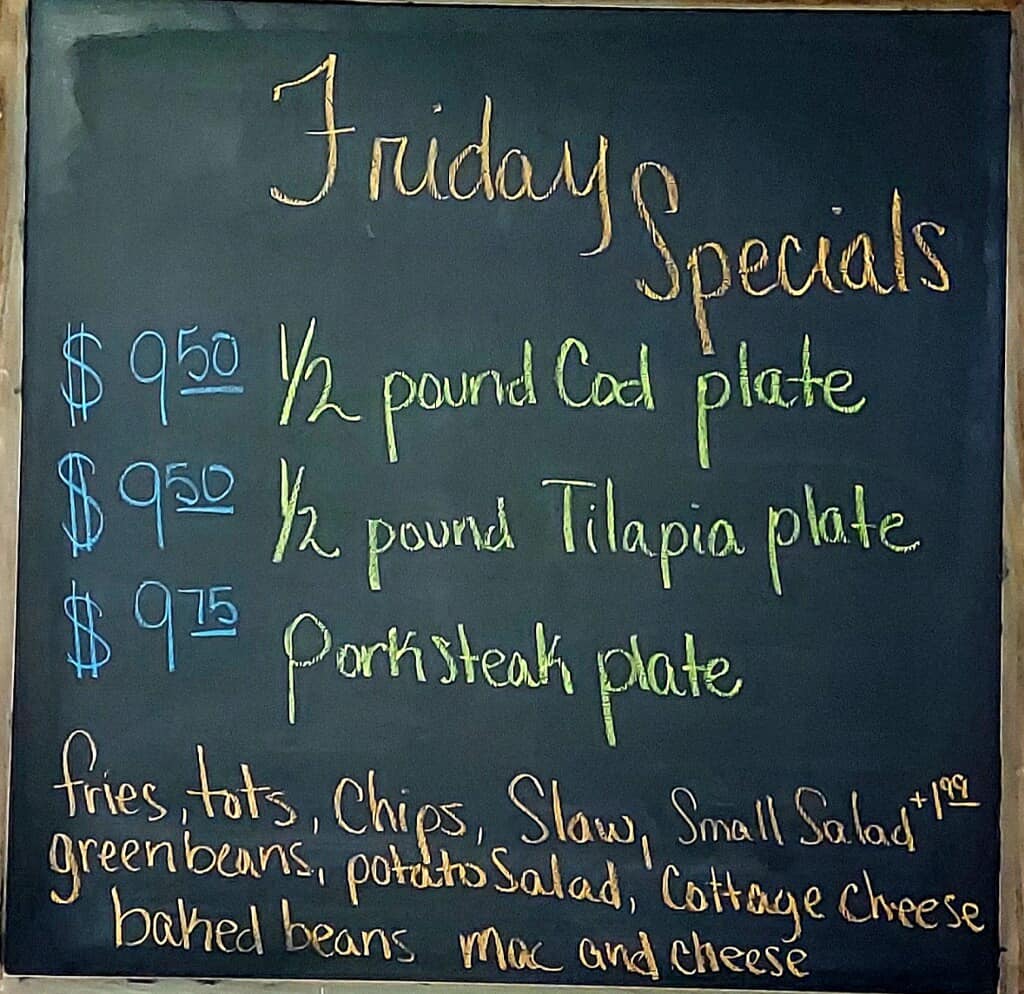 Friday Specials
$ 9 50 1/2 pound Cod plate
$ 9 50 1/2 pound Tilapia plate
$ 9 75 Porksteak plate
fries, tots, Chips, Slaw, Small Salad +1 99
greenbeans, potato Salad, Cottage Cheese
baked beans mac and cheese